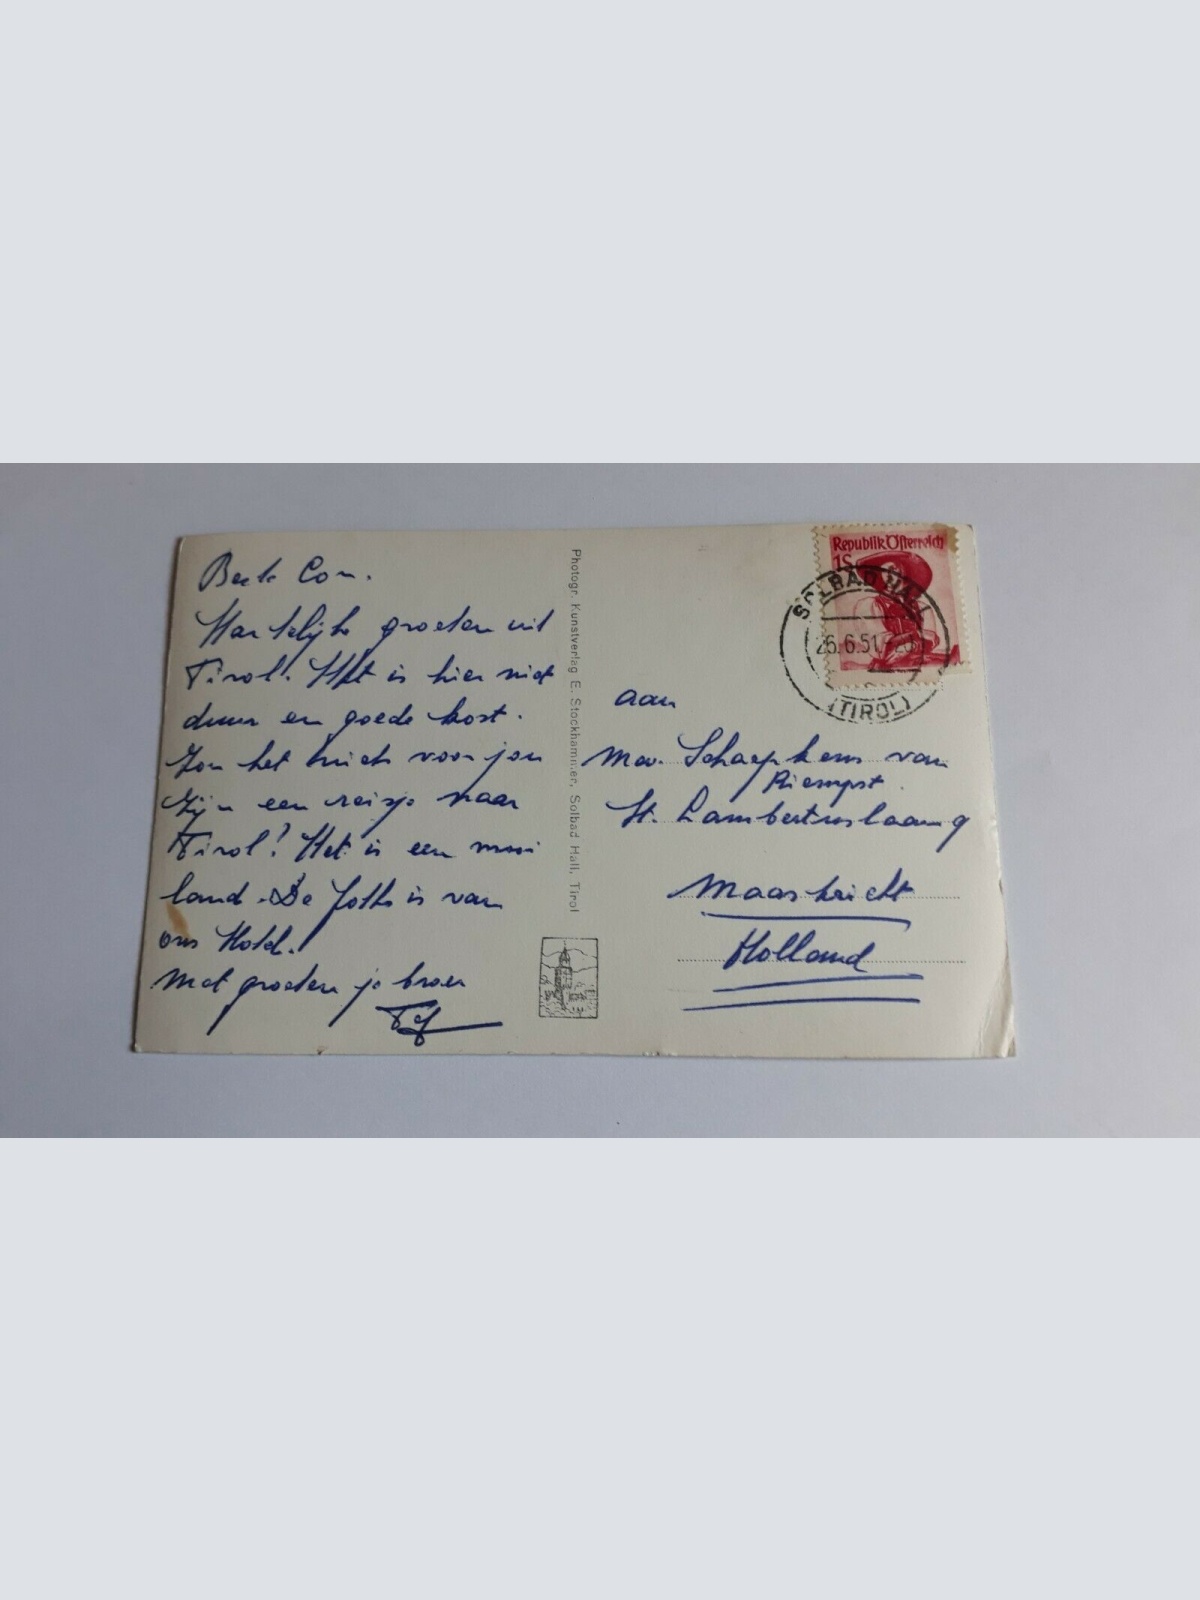 Hartelijke groeten uit
Tirol! Het is hier niet
duur en goede kost.
Zou het niets voor jou
zijn een reisje naar
Tirol? Het is een mooi
land. De foto is van
ons Hotel.
Met groeten je broer
Photogr. Kunstverlag E. Stockhammer, Solbad Hall, Tirol
Republik Österreich
1S
SOLBAD HALL
26.6.51
(TIROL)
aan
Mev. Schaepkens van
Riempst.
St. Lambertuslaan 9
Maastricht
Holland